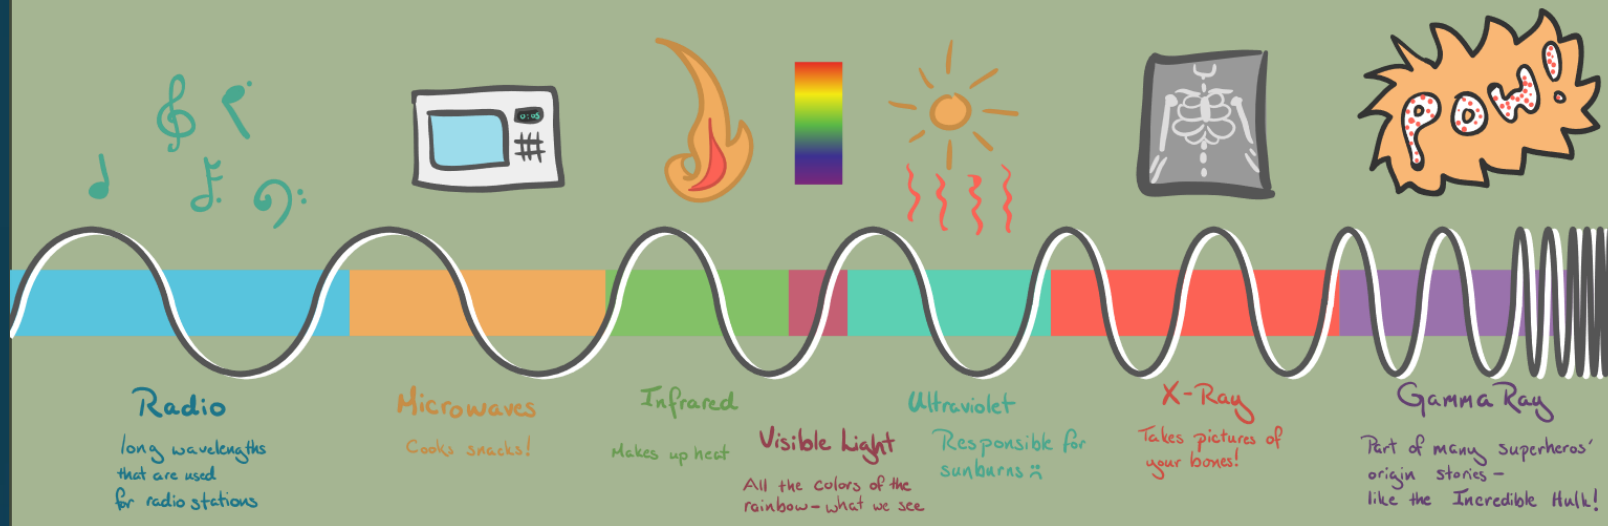 POW!
Radio
long wavelengths
that are used
for radio stations
Microwaves
Cooks snacks!
Infrared
Makes up heat
Visible Light
All the colors of the
rainbow - what we see
Ultraviolet
Responsible for
sunburns :(
X-Ray
Takes pictures of
your bones!
Gamma Ray
Part of many superheros'
origin stories -
like the Incredible Hulk!